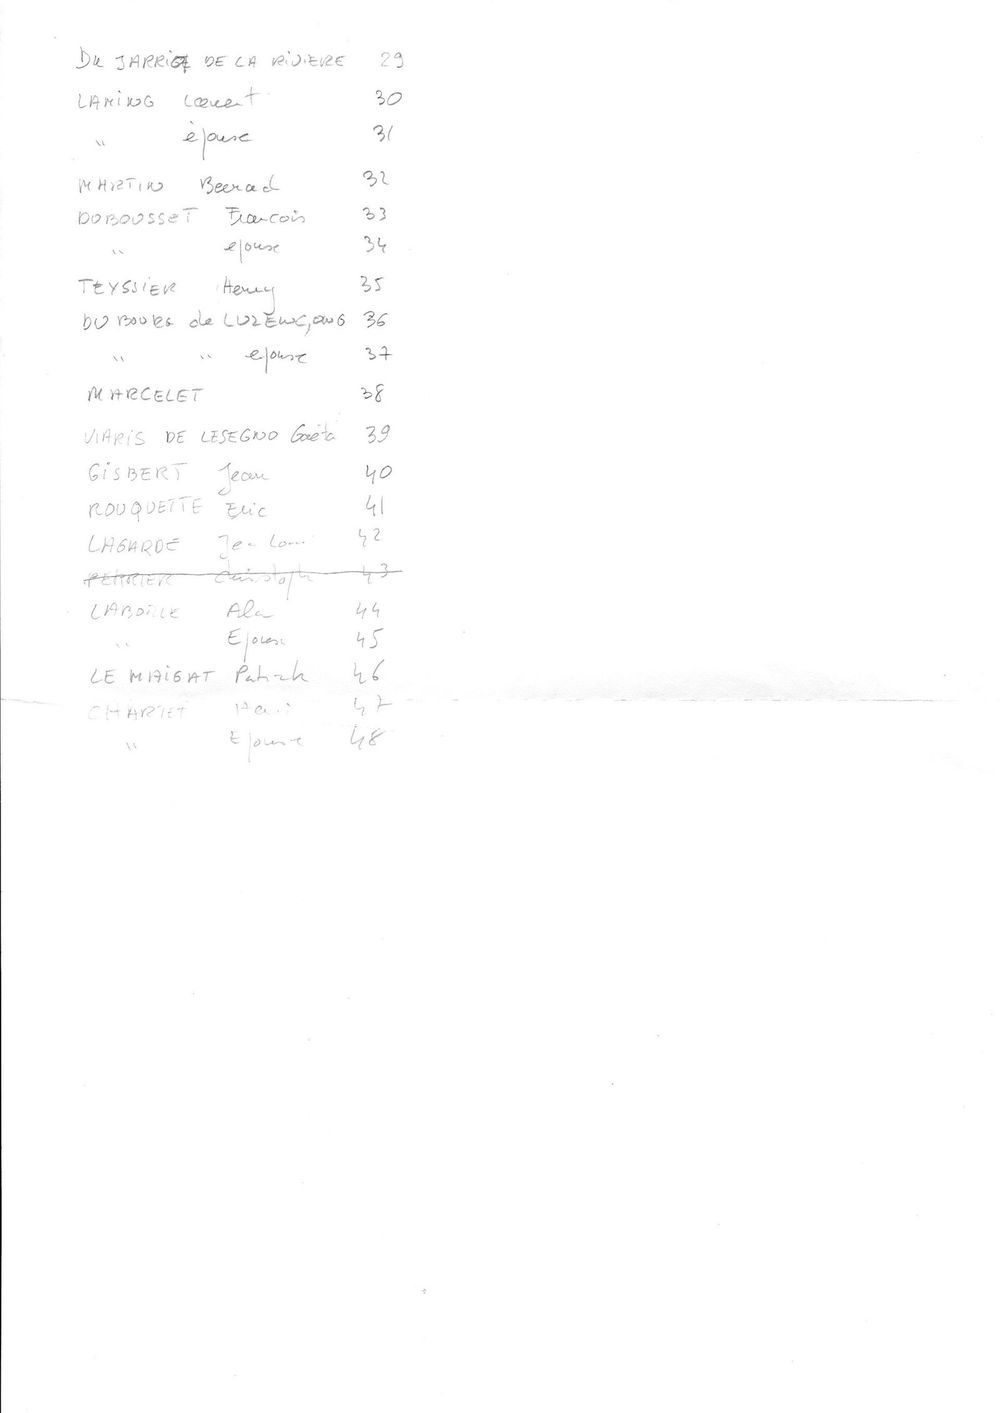 DU JARRIG DE LA RIVIERE 29
LAMING Laurent 30
" épouse 31
MARTIN Bernard 32
DUBOUSSET Francois 33
" epouse 34
TEYSSIER Henry 35
DU BOURG de LUZENÇONG 36
" " epouse 37
MARCELET 38
VIARIS DE LESEGNO Gaëta 39
GISBERT Jean 40
ROUQUETTE Eric 41
LAGARDE Jean Loui 42
PERRIER Christophe 43
LABORIE Alain 44
" Epouse 45
LE MAIGAT Patrick 46
47
" Epouse 48